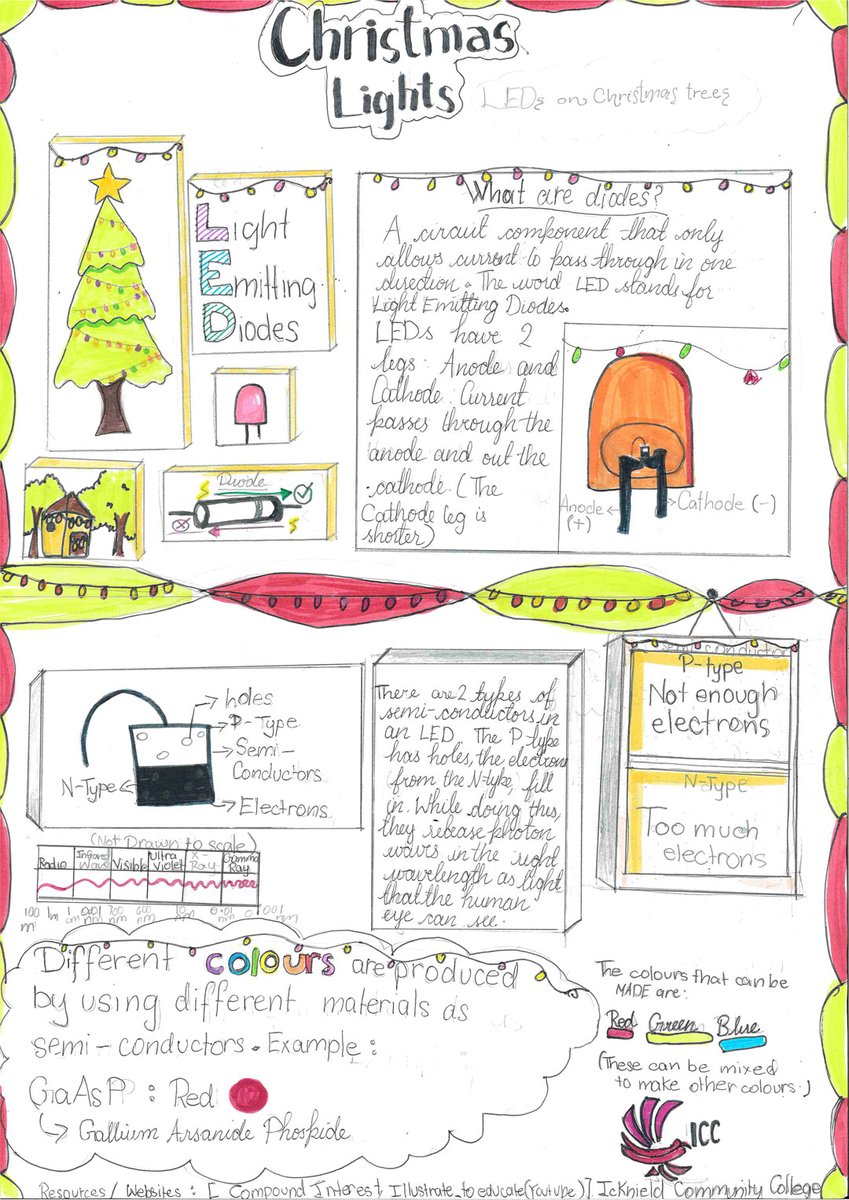 Christmas
Lights
LEDs on Christmas trees
Light
Emitting
Diodes
What are diodes?
A circuit component that only
allows current to pass through in one
direction. The word LED stands for
Light Emitting Diodes.
LEDs have 2
legs: Anode and
Cathode. Current
passes through the
anode and out the
cathode. (The
Cathode leg is
shorter)
Anode
(+)
Cathode (-)
Diode
holes
P-Type
Semi-
Conductors
N-Type
Electrons
There are 2 types of
semi-conductors in
an LED. The P type
has holes, the electrons
from the N-type, fill
in. While doing this,
they release photon
waves in the right
wavelength as light
that the human
eye can see.
Semi-conductor
P-type
Not enough
electrons
N-Type
Too much
electrons
(Not Drawn to scale)
Radio
Infrared
Wave
Visible
Ultra
Violet
X-
Ray
Gamma
Ray
Different colours are produced
by using different materials as
semi-conductors. Example:
GaAsP : Red
Gallium Arsanide Phospide
The colours that can be
MADE are:
Red Green Blue
(These can be mixed
to make other colours.)
ICC
Resources / Websites : [ Compound Interest, Illustrate_to educate (Youtube)]. Icknield Community College